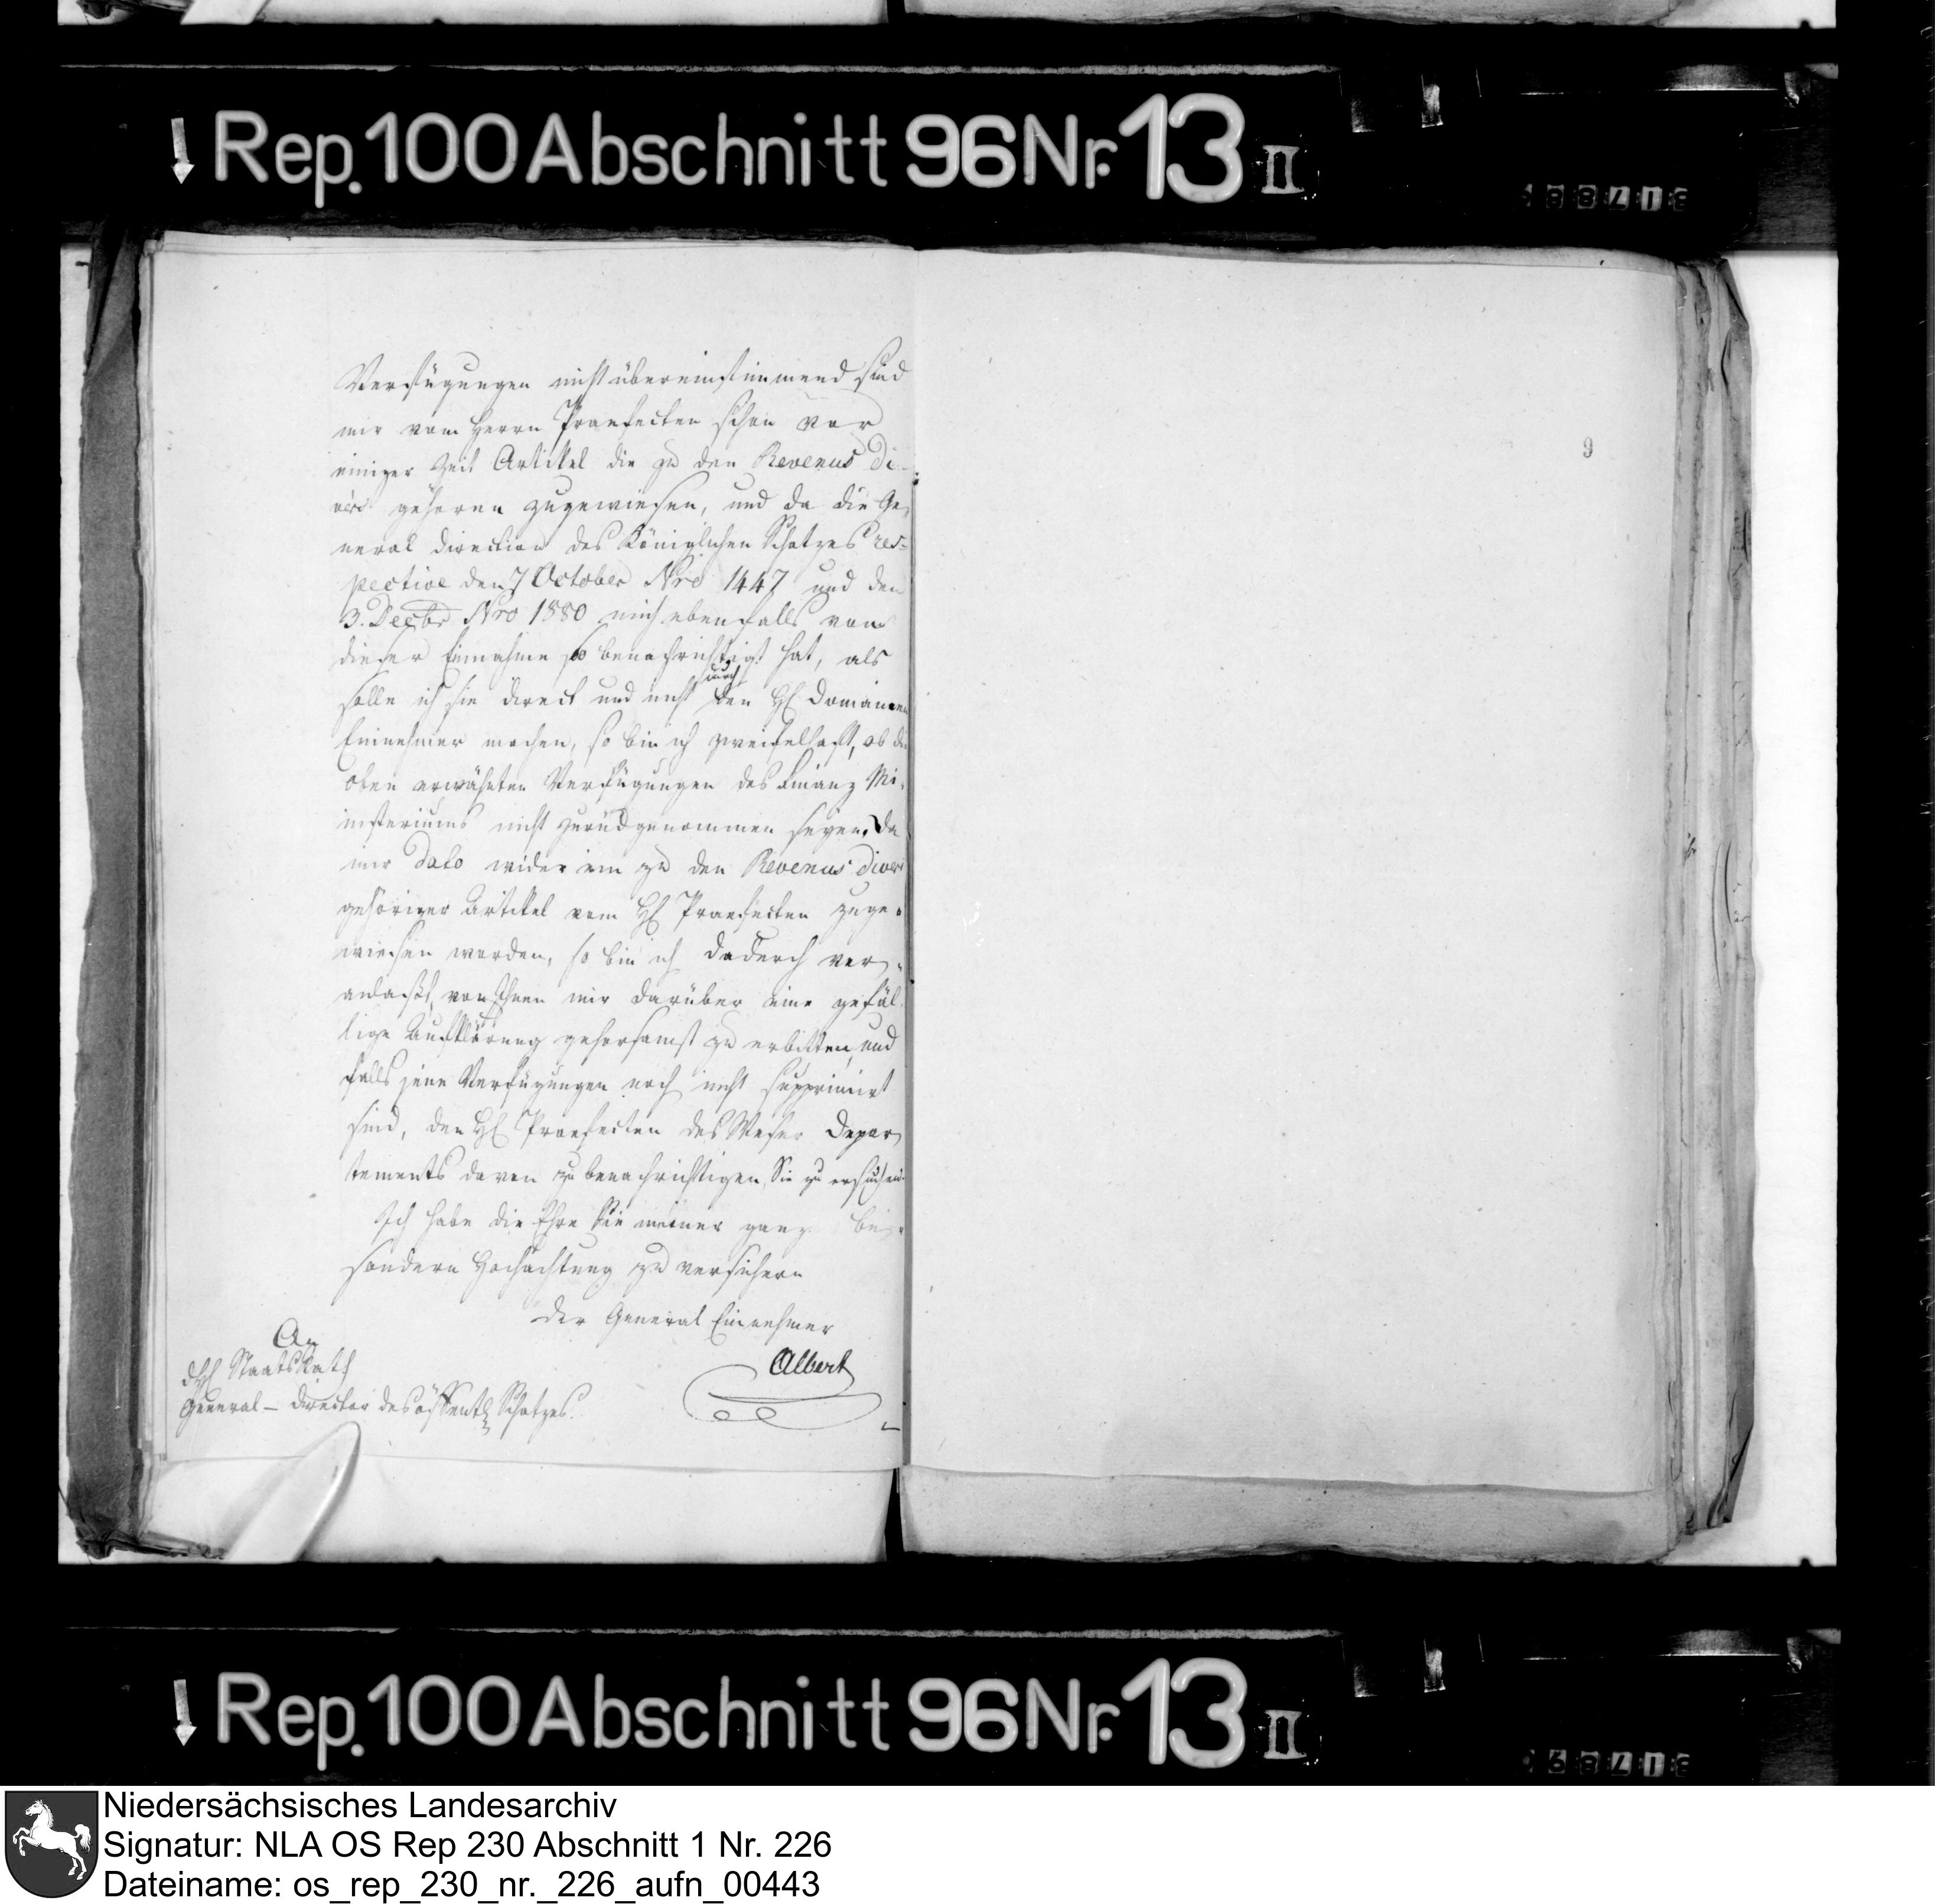 Rep. 100 Abschnitt 96 Nr. 13 II
Verfügungen nicht übereinstimmend sind
mir vom Herrn Praefecten schon vor
einiger Zeit Artikel die zu den Revenus di-
vers gehören zugewiesen, und da die Ge-
neral direction des Königlichen Schatzes res-
pective den 7 October Nro 1447 und den
3. Decbr Nro 1880 mich ebenfalls von
dieser Einnahme so benachrichtigt hat, als
solle ich sie direct und nicht durch den H Domainen
Einnehmer machen, so bin ich zweifelhaft, ob die
oben erwähnten Verfügungen des Finanz Mi-
nisteriums nicht zurückgenommen seyen, Da
mir dato wider ein zu den Revenus divers
gehöriger Artikel vom H Praefecten zuge-
wiesen worden, so bin ich dadurch ver-
anlaßt, von Ihnen mir darüber eine gefäl-
lige Aufklärung gehorsamst zu erbitten, und
falls jene Verfügungen noch nicht supprimirt
sind, den H Praefecten des Weser Depar
tements davon zu benachrichtigen, Sie zu ersuchen.
Ich habe die Ehre Sie meiner ganz be-
sondern Hochachtung zu versichern
Der General Einnehmer
Albert
An
d H StaatsRath
General - Director des öffentl Schatzes.
9
Rep. 100 Abschnitt 96 Nr. 13 II
Niedersächsisches Landesarchiv
Signatur: NLA OS Rep 230 Abschnitt 1 Nr. 226
Dateiname: os_rep_230_nr._226_aufn_00443